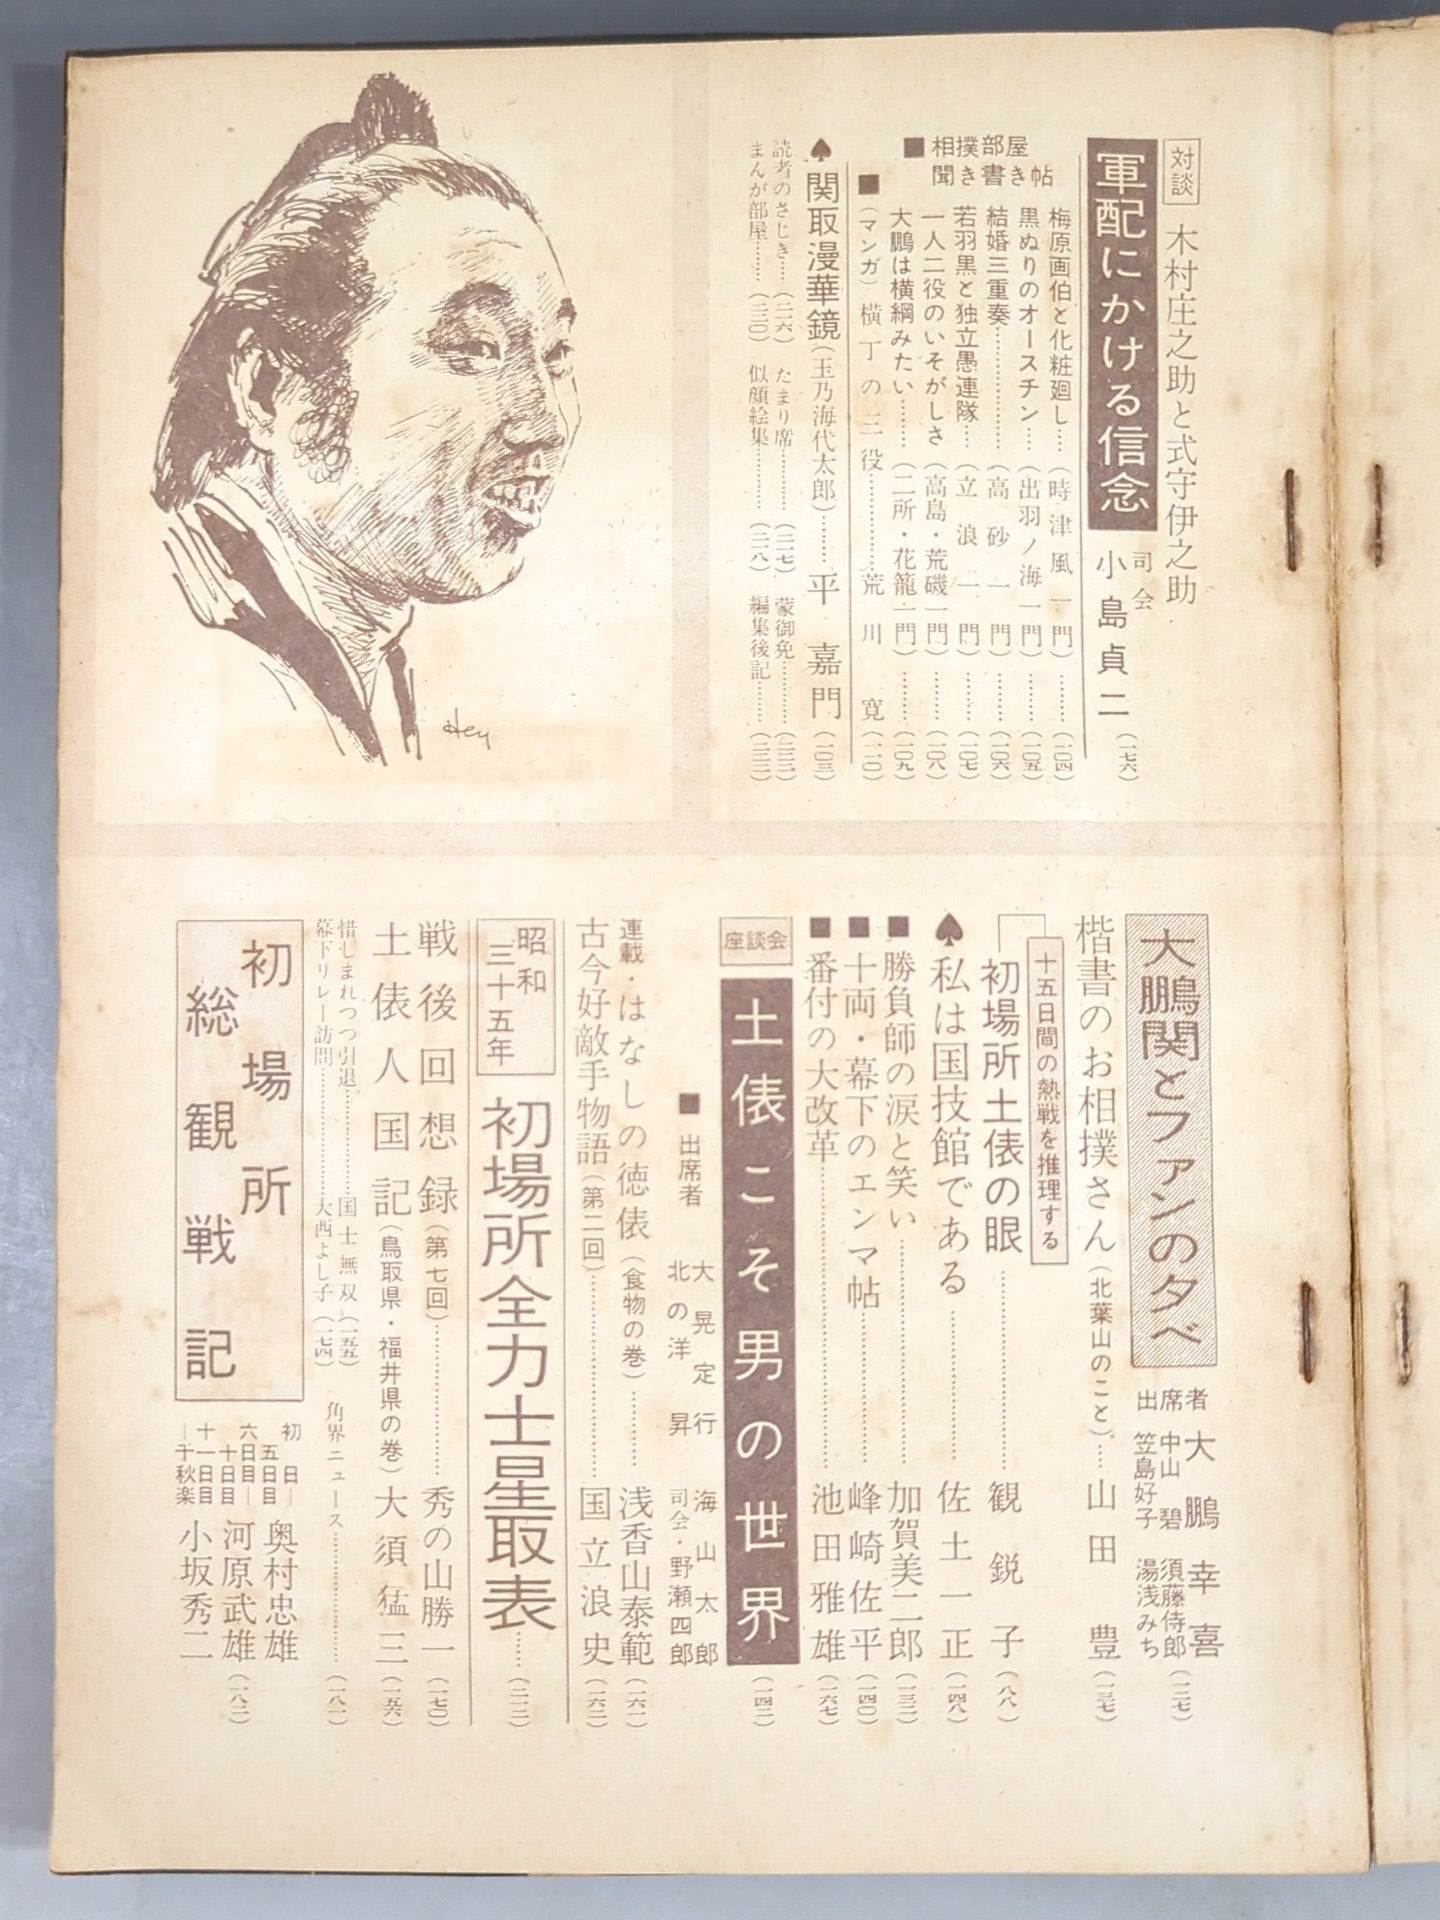 対談
木村庄之助と式守伊之助
軍配にかける信念
司会
小島貞二
(一七六)
■相撲部屋
聞き書き帖
梅原画伯と化粧廻し…(時津風一門)……(一〇四)
黒ぬりのオースチン…(出羽ノ海一門)……(一〇五)
結婚三重奏…………(高砂一門)……(一〇六)
若羽黒と独立愚連隊…(立浪一門)……(一〇七)
一人二役のいそがしさ(高島・荒磯一門)……(一〇八)
大鵬は横綱みたい……(二所・花籠一門)……(一〇九)
■(マンガ)横丁の三役…………荒川寛(一一〇)
♠関取漫華鏡(玉乃海代太郎)……平嘉門(一〇三)
読者のさじき…(二一六) たまり席………(二一七) 蒙御免………(二二二)
まんが部屋……(二二〇) 似顔絵集………(二一八) 編集後記………(二二二)
Hey
大鵬関とファンの夕べ
出席者
大鵬幸喜
中山碧
須藤侍郎
笠島好子
湯浅みち
(一二七)
楷書のお相撲さん(北葉山のこと)…山田豊(一三七)
十五日間の熱戦を推理する
初場所土俵の眼……………観鋭子(八八)
♠私は国技館である…………佐土一正(一四八)
■勝負師の涙と笑い……………加賀美二郎(一三二)
■十両・幕下のエンマ帖…………峰崎佐平(一四〇)
■番付の大改革……………………池田雅雄(一六七)
座談会
土俵こそ男の世界
(一四二)
■出席者
大晃定行
北の洋昇
海山太郎
司会・野瀬四郎
連載・はなしの徳俵(食物の巻)………浅香山泰範(一六一)
古今好敵手物語(第二回)……………国立浪史(一六二)
昭和
三十五年
初場所全力士星取表……(二一二)
戦後回想録(第七回)……………秀の山勝一(一七〇)
土俵人国記(鳥取県・福井県の巻)大須猛三(一五六)
惜しまれつつ引退…………国士無双(一五五)
幕下リレー訪問……………大西よし子(一七四)
角界ニュース……………(一八一)
初場所
総観戦記
初日―
五日目
奥村忠雄
六日目―
十日目
河原武雄
十一日目
―千秋楽
小坂秀二
(一八二)